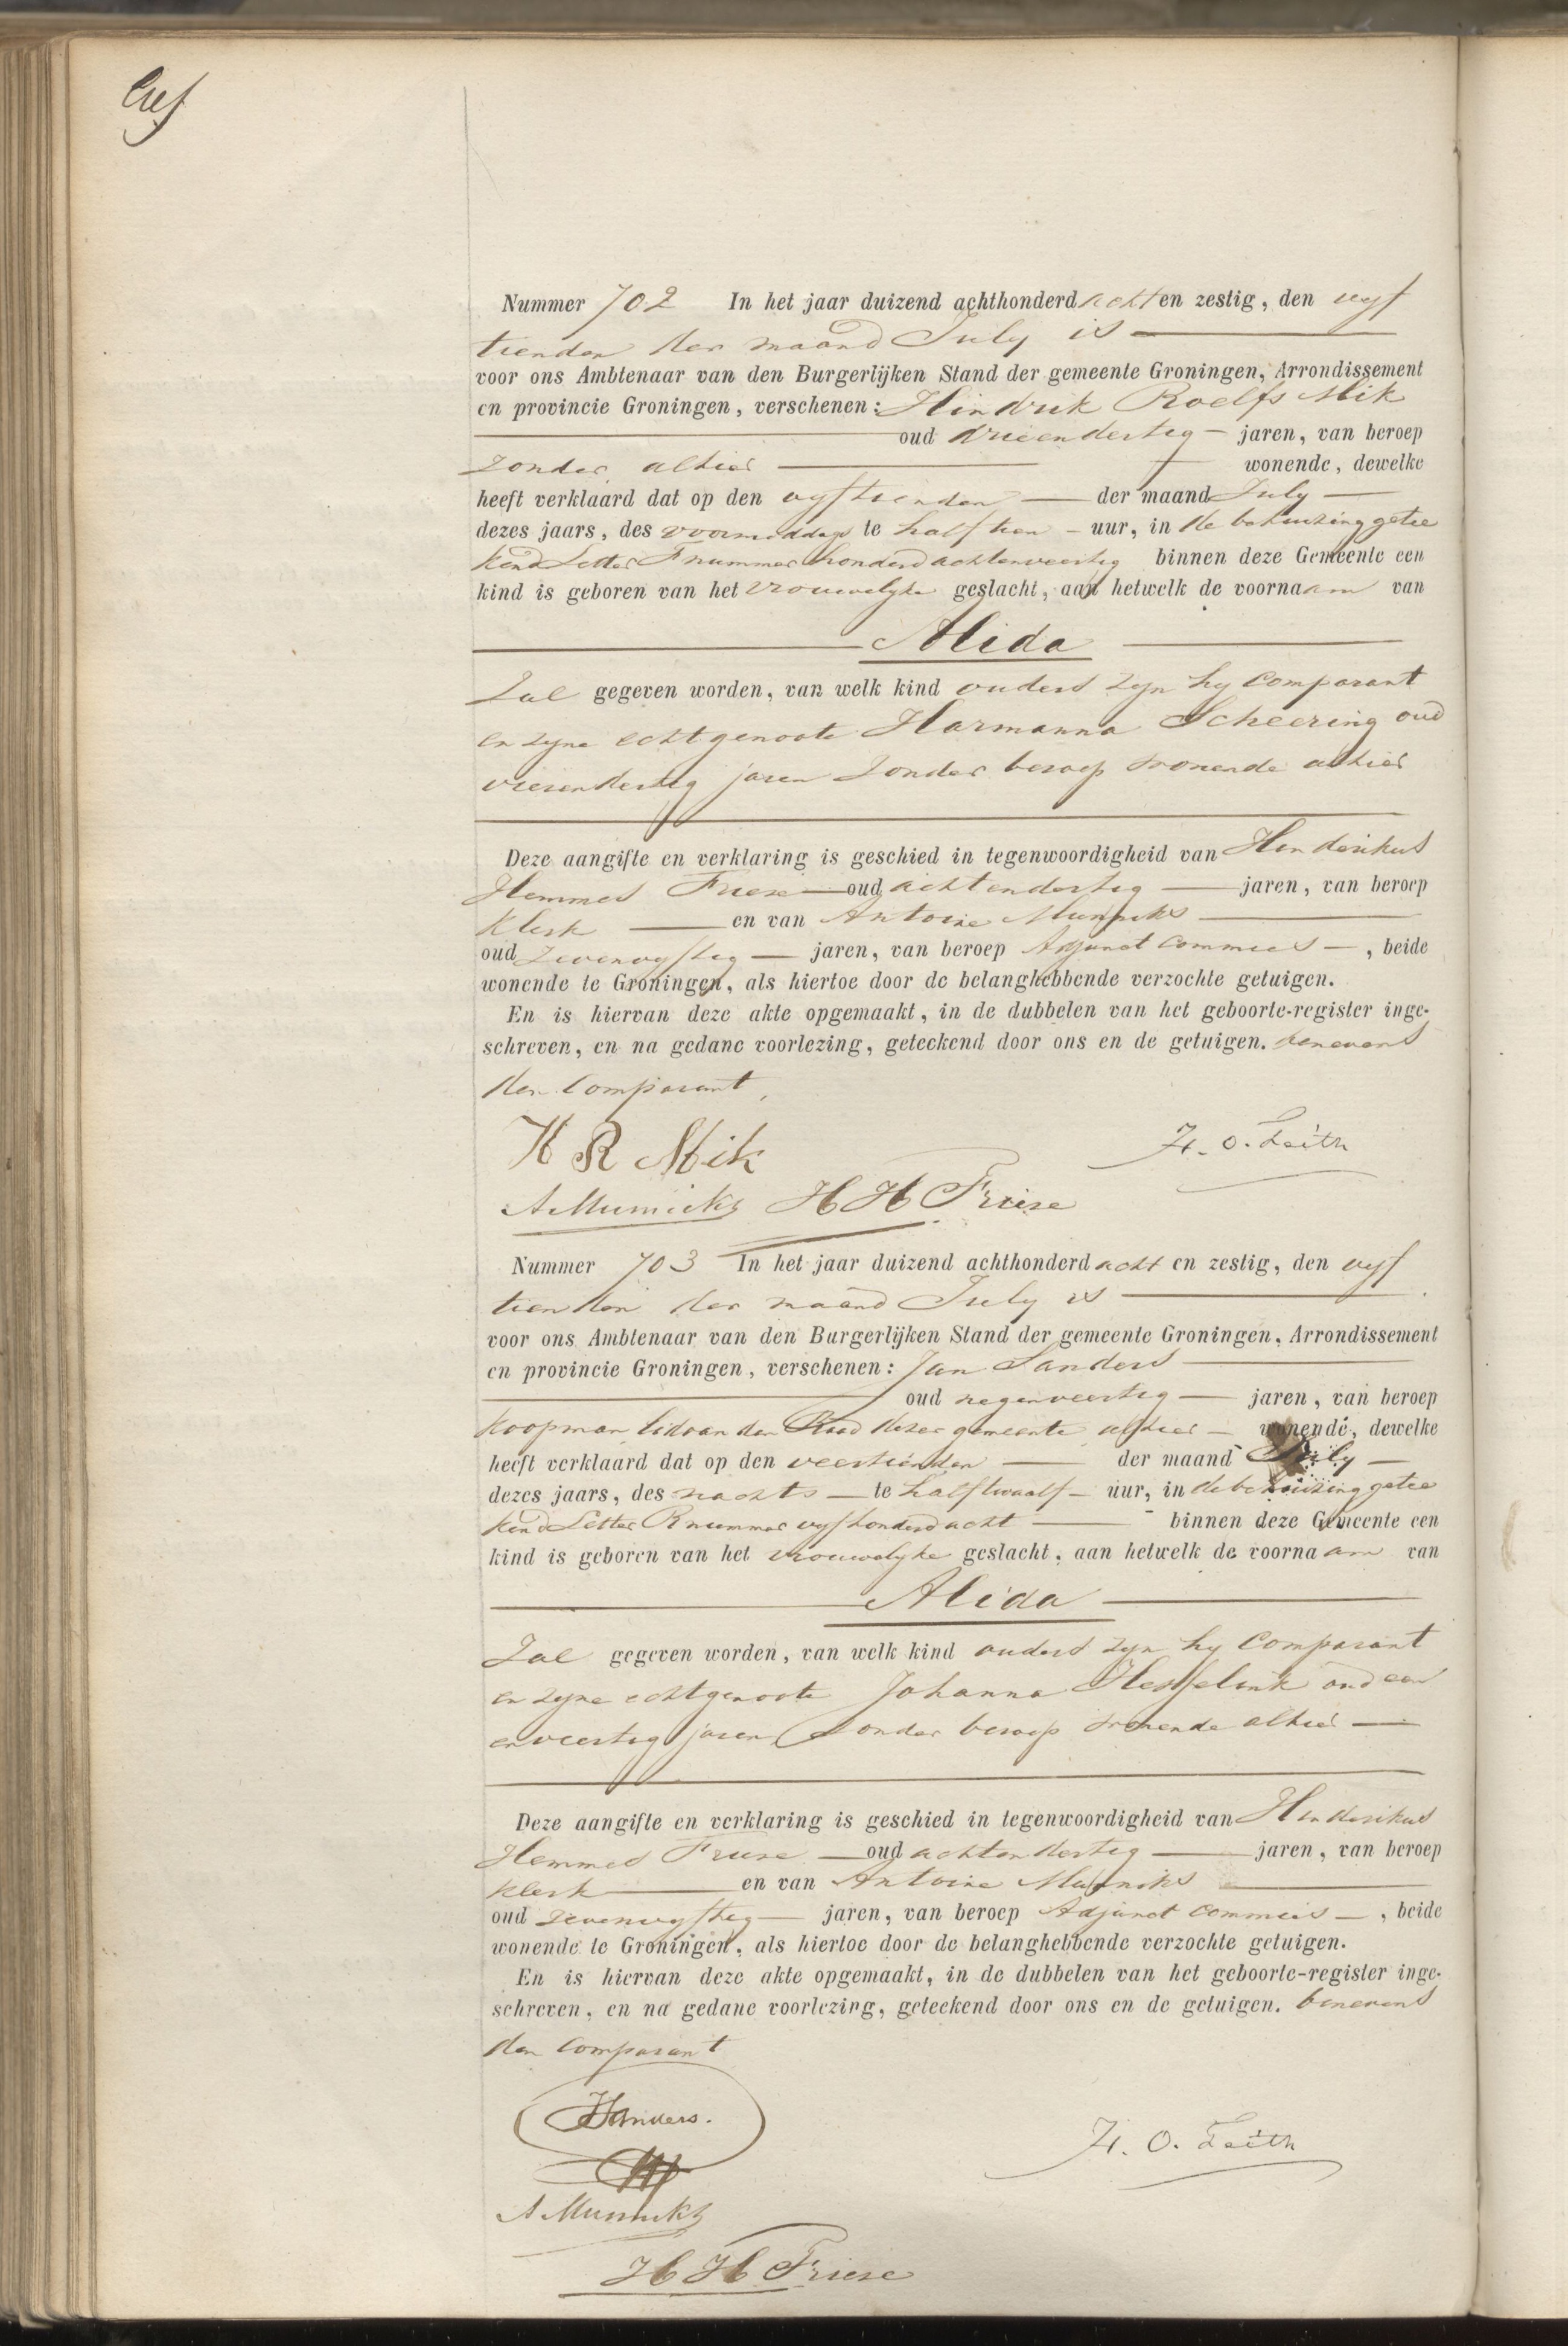 Nummer 702 In het jaar duizend achthonderd acht en zestig, den vyf
tienden der maand July is
voor ons Ambtenaar van den Burgerlijken Stand der gemeente Groningen, Arrondissement
en provincie Groningen, verschenen: Hindrik Roelfs Mik
oud drieendertig jaren, van beroep
zonder, alhier wonende, dewelke
heeft verklaard dat op den vyftienden der maand July
dezes jaars, des voormiddags te half tien uur, in de behuizing getee
kend Letter F nummer honderd achtenveertig binnen deze Gemeente een
kind is geboren van het vrouwelyke geslacht, aan hetwelk de voornaam van
Alida
Zal gegeven worden, van welk kind ouders zyn hy Comparant
en zyne echtgenoote Harmanna Scheering oud
vierendertig jaren zonder beroep wonende alhier
Deze aangifte en verklaring is geschied in tegenwoordigheid van Henderikus
Hemmes Friese oud achtendertig jaren, van beroep
Klerk en van Antoine Munniks
oud zevenvyftig jaren, van beroep Adjunct Commies, beide
wonende te Groningen, als hiertoe door de belanghebbende verzochte getuigen.
En is hiervan deze akte opgemaakt, in de dubbelen van het geboorte-register inge-
schreven, en na gedane voorlezing, geteekend door ons en de getuigen. benevens
den Comparant,
H R Mik
A Munnicks H H Friese
Nummer 703 In het jaar duizend achthonderd acht en zestig, den vyf
tienden der maand July is
voor ons Ambtenaar van den Burgerlijken Stand der gemeente Groningen, Arrondissement
en provincie Groningen, verschenen: Jan Sanders
oud negenveertig jaren, van beroep
Koopman, lid van den Raad dezer gemeente alhier wonende, dewelke
heeft verklaard dat op den veertienden der maand July
dezes jaars, des nachts te half twaalf uur, in de behuizing getee
kend Letter R nummer vyfhonderd acht binnen deze Gemeente een
kind is geboren van het vrouwelyke geslacht, aan hetwelk de voornaam van
Alida
Zal gegeven worden, van welk kind ouders zyn hy Comparant
en zyne echtgenoote Johanna Hesselink oud een
enveertig jaren, zonder beroep wonende alhier
Deze aangifte en verklaring is geschied in tegenwoordigheid van Henderikus
Hemmes Friese oud achtendertig jaren, van beroep
Klerk en van Antoine Munniks
oud zevenvyftig jaren, van beroep Adjunct Commies, beide
wonende te Groningen, als hiertoe door de belanghebbende verzochte getuigen.
En is hiervan deze akte opgemaakt, in de dubbelen van het geboorte-register inge-
schreven, en na gedane voorlezing, geteekend door ons en de getuigen. benevens
den Comparant
JSanders.
A Munnicks
H H Friese